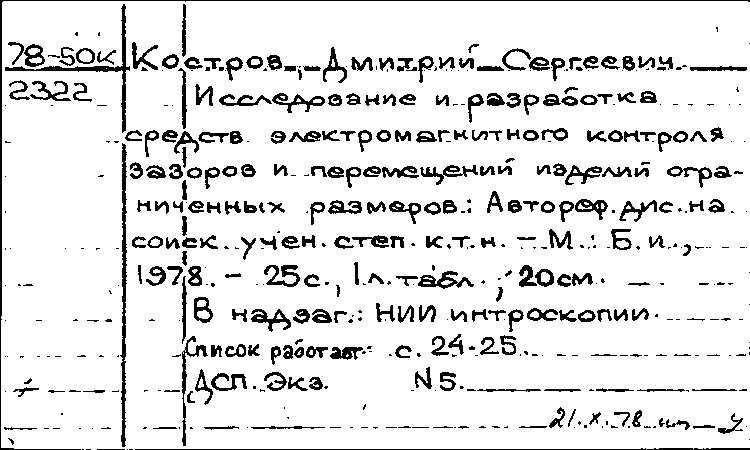 78-50к Костров, Дмитрий Сергеевич.
2322 Исследование и разработка
средств электромагнитного контроля
зазоров и перемещений изделий огра-
ниченных размеров.: Автореф. дис. на
соиск. учен. степ. к.т.н. – М.: Б.и.,
1978. – 25с., 1л.табл.; 20см.
В надзаг.: НИИ интроскопии.
Список работ авт.: с. 24-25.
ДСП. Экз. N5.
21.X.78